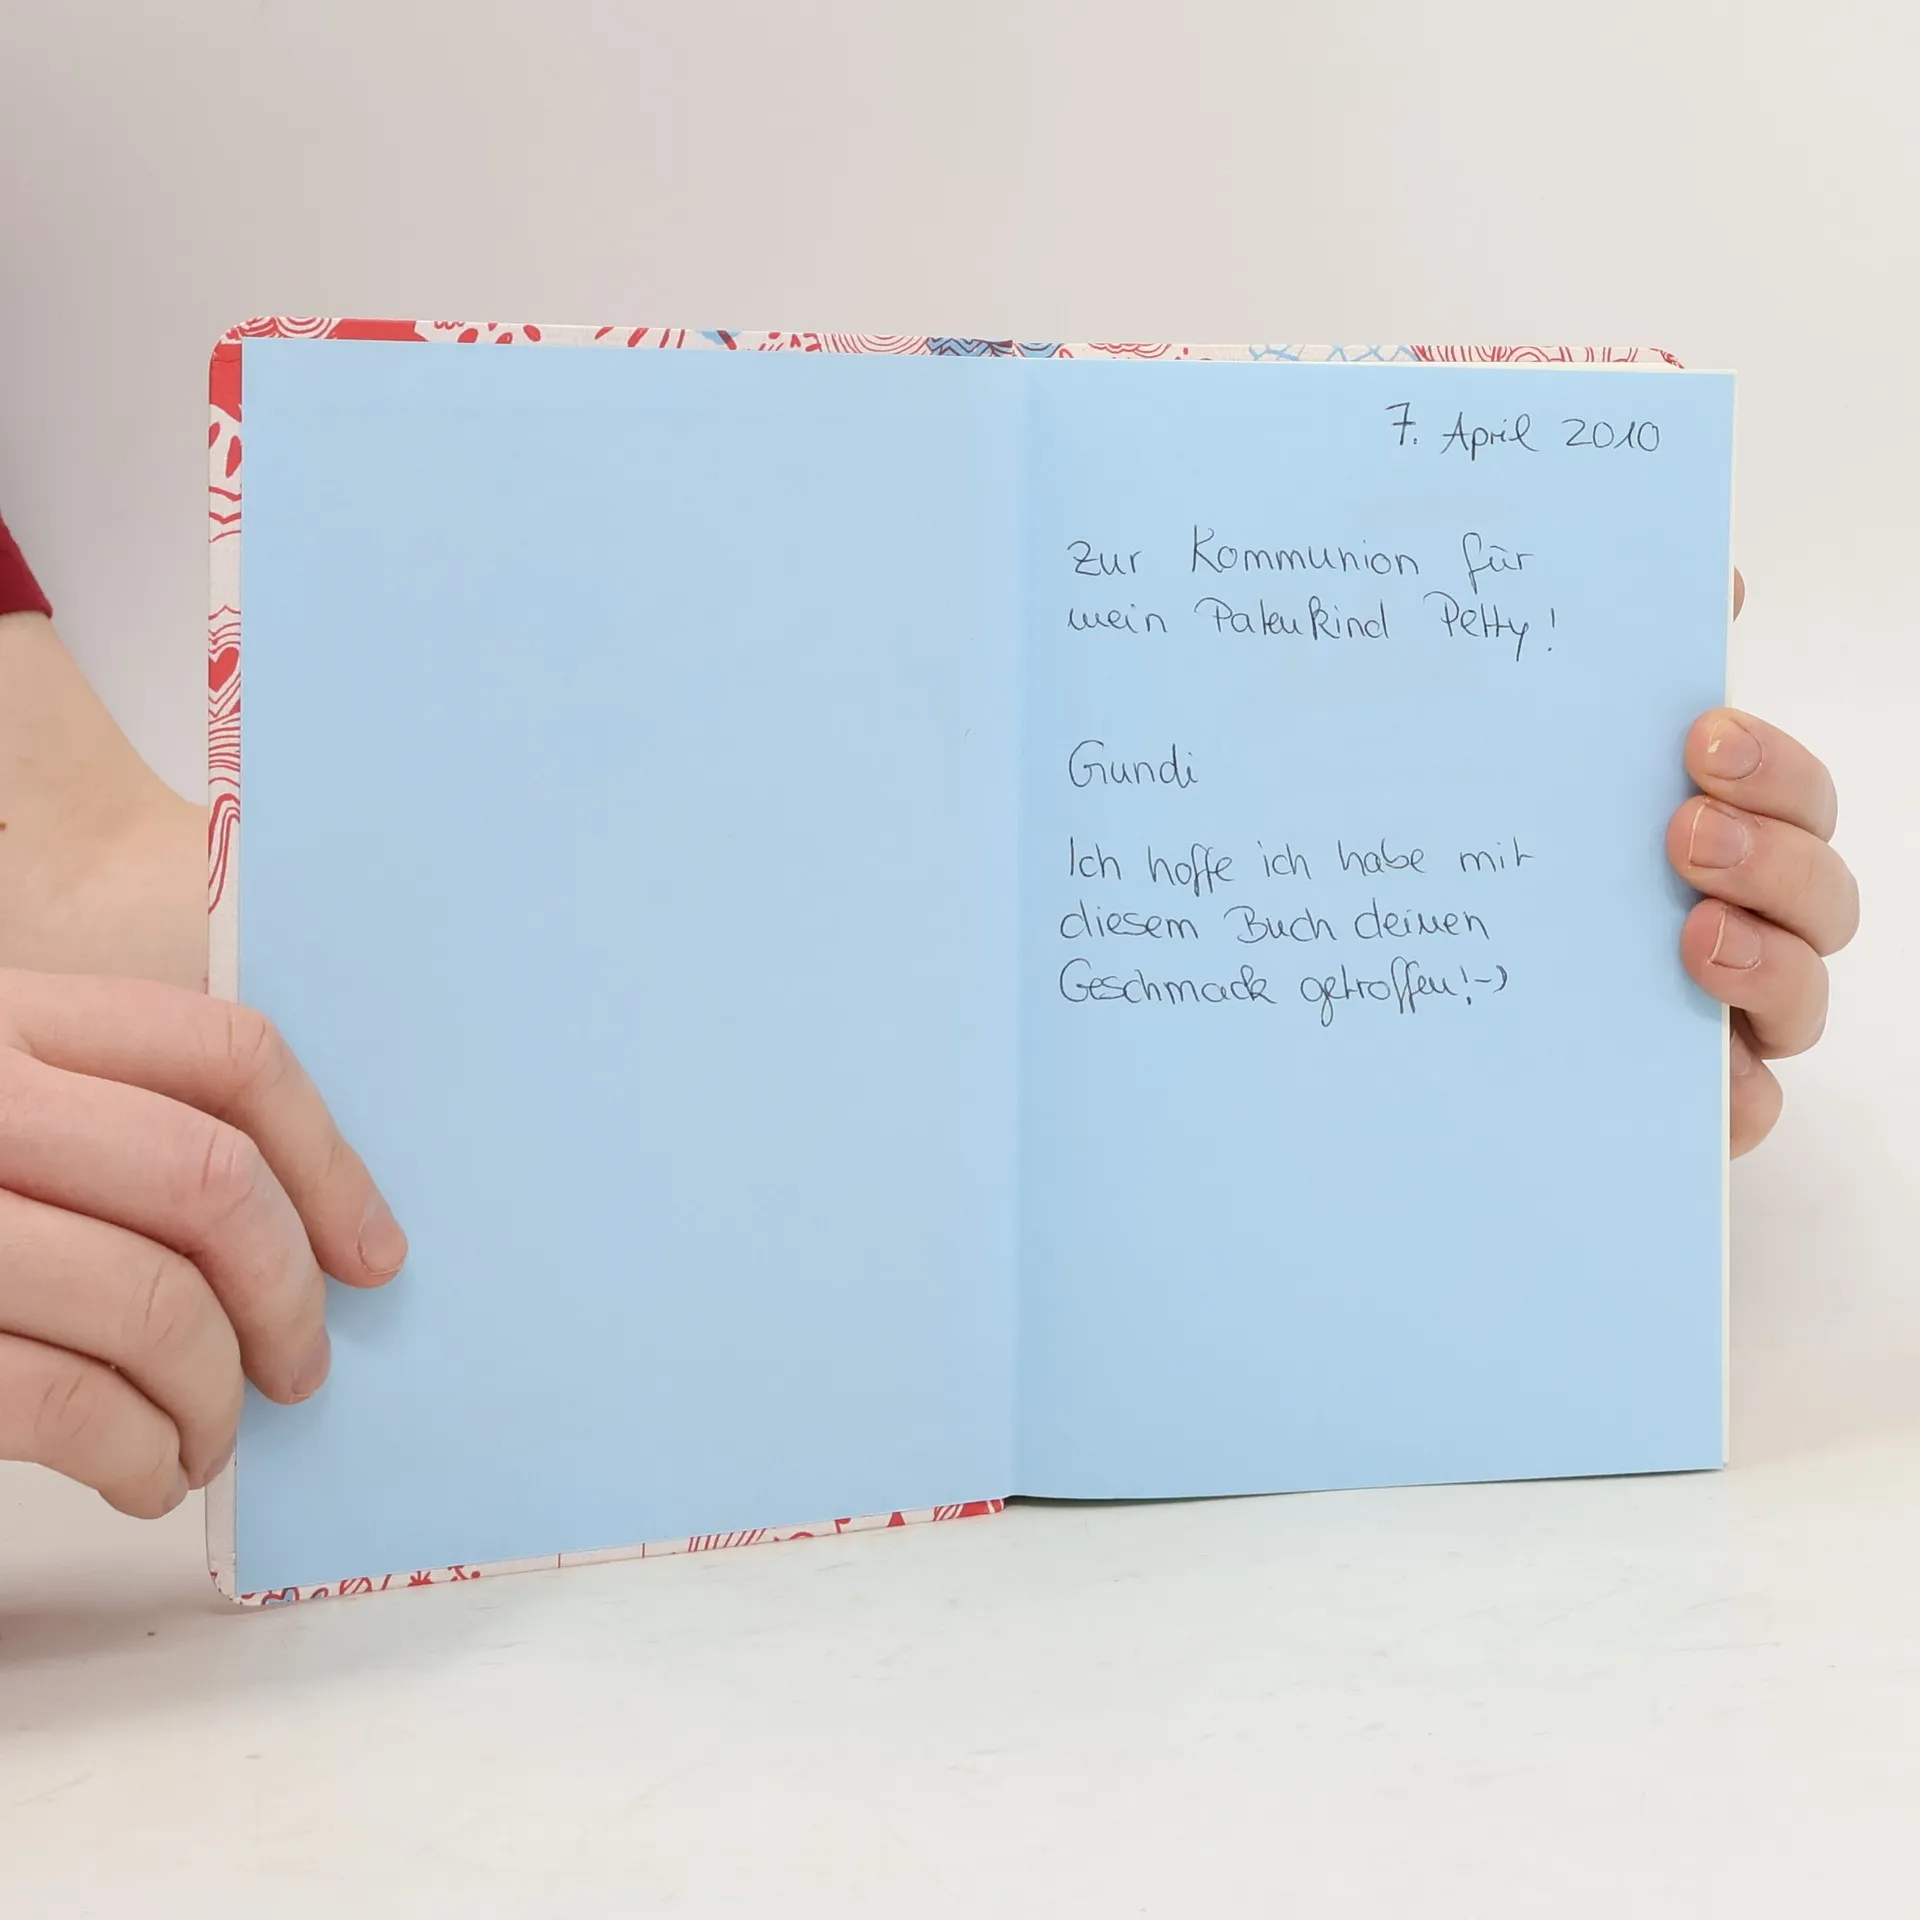 7. April 2010
Zur Kommunion für
mein Patenkind Petty!
Gundi
Ich hoffe ich habe mit
diesem Buch deinen
Geschmack getroffen!-)